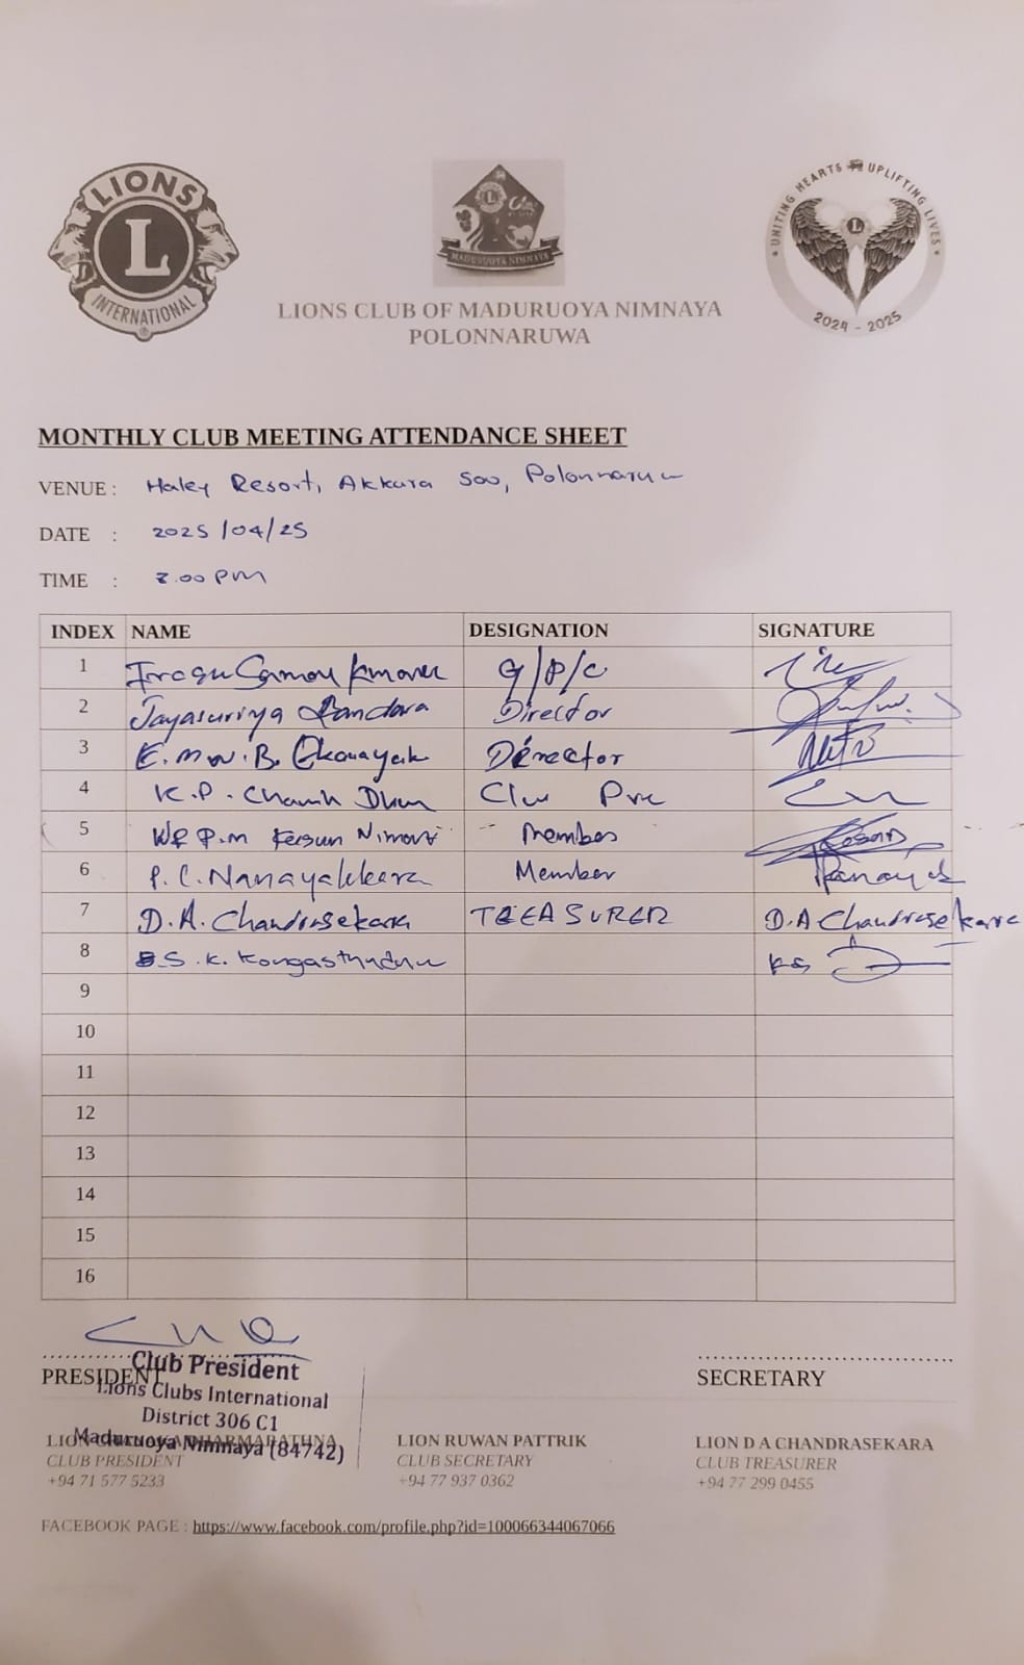 LIONS
L
INTERNATIONAL
MADURUOYA NIMNAYA
UNITING HEARTS UPLIFTING LIVES
L
2024 - 2025
LIONS CLUB OF MADURUOYA NIMNAYA
POLONNARUWA
MONTHLY CLUB MEETING ATTENDANCE SHEET
VENUE : Haley Resort, Akkara Polonnaruw
DATE : 2025/04/25
TIME : .00 PM
INDEX NAME DESIGNATION SIGNATURE
1 G/P/C
2 Jayasuriya Bandara Director
3 E.M.W.B. Ekanayak Director
4 K.P.
5 Member
6 P.C. Nanayakkara Member
7 D.A. Chandrasekara TREASURER D.A Chandrasekara
8 S.K.
9
10
11
12
13
14
15
16
PRESIDENT
SECRETARY
Club President
Lions Clubs International
District 306 C1
Maduruoya Nimnaya (84742)
LION DHARMARATHNA
CLUB PRESIDENT
+94 71 577 5233
LION RUWAN PATTRIK
CLUB SECRETARY
+94 77 937 0362
LION D A CHANDRASEKARA
CLUB TREASURER
+94 77 299 0455
FACEBOOK PAGE : https://www.facebook.com/profile.php?id=100066344067066